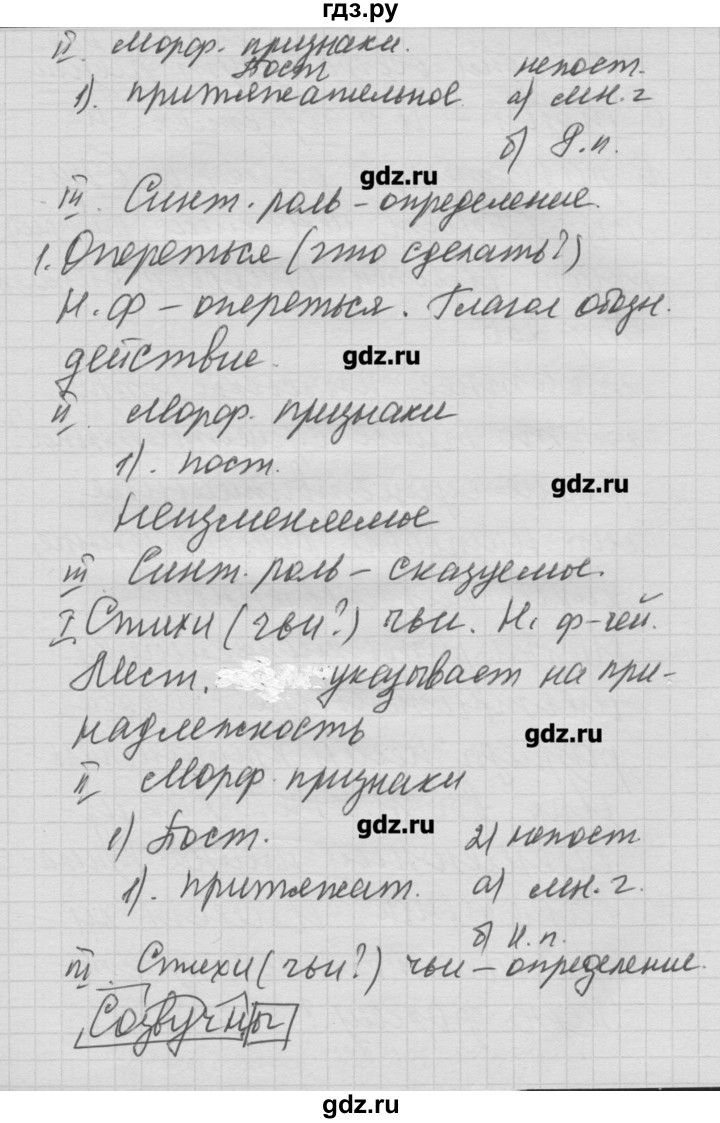 гдз.ру
II Морф. признаки.
Пост непост.
1). притяжательное. а) мн. г
б) Р.п.
gdz.ru
III. Синт. роль – определение.
1. Опереться (что сделать?)
Н. ф – опереться. Глагол обозн.
действие.
gdz.ru
II Морф. признаки
1). пост.
gdz.ru
Неизменяемое
III Синт. роль – сказуемое.
I. Стихи (чьи?) чьи. Н. ф-чей.
Мест. указывает на при-
надлежность
gdz.ru
II Морф. признаки
1) Пост. 2) непост.
gdz.ru
1). притяжат. а) мн. г.
б) И.п.
III. Стихи (чьи?) чьи – определение.
Созвучны
gdz.ru